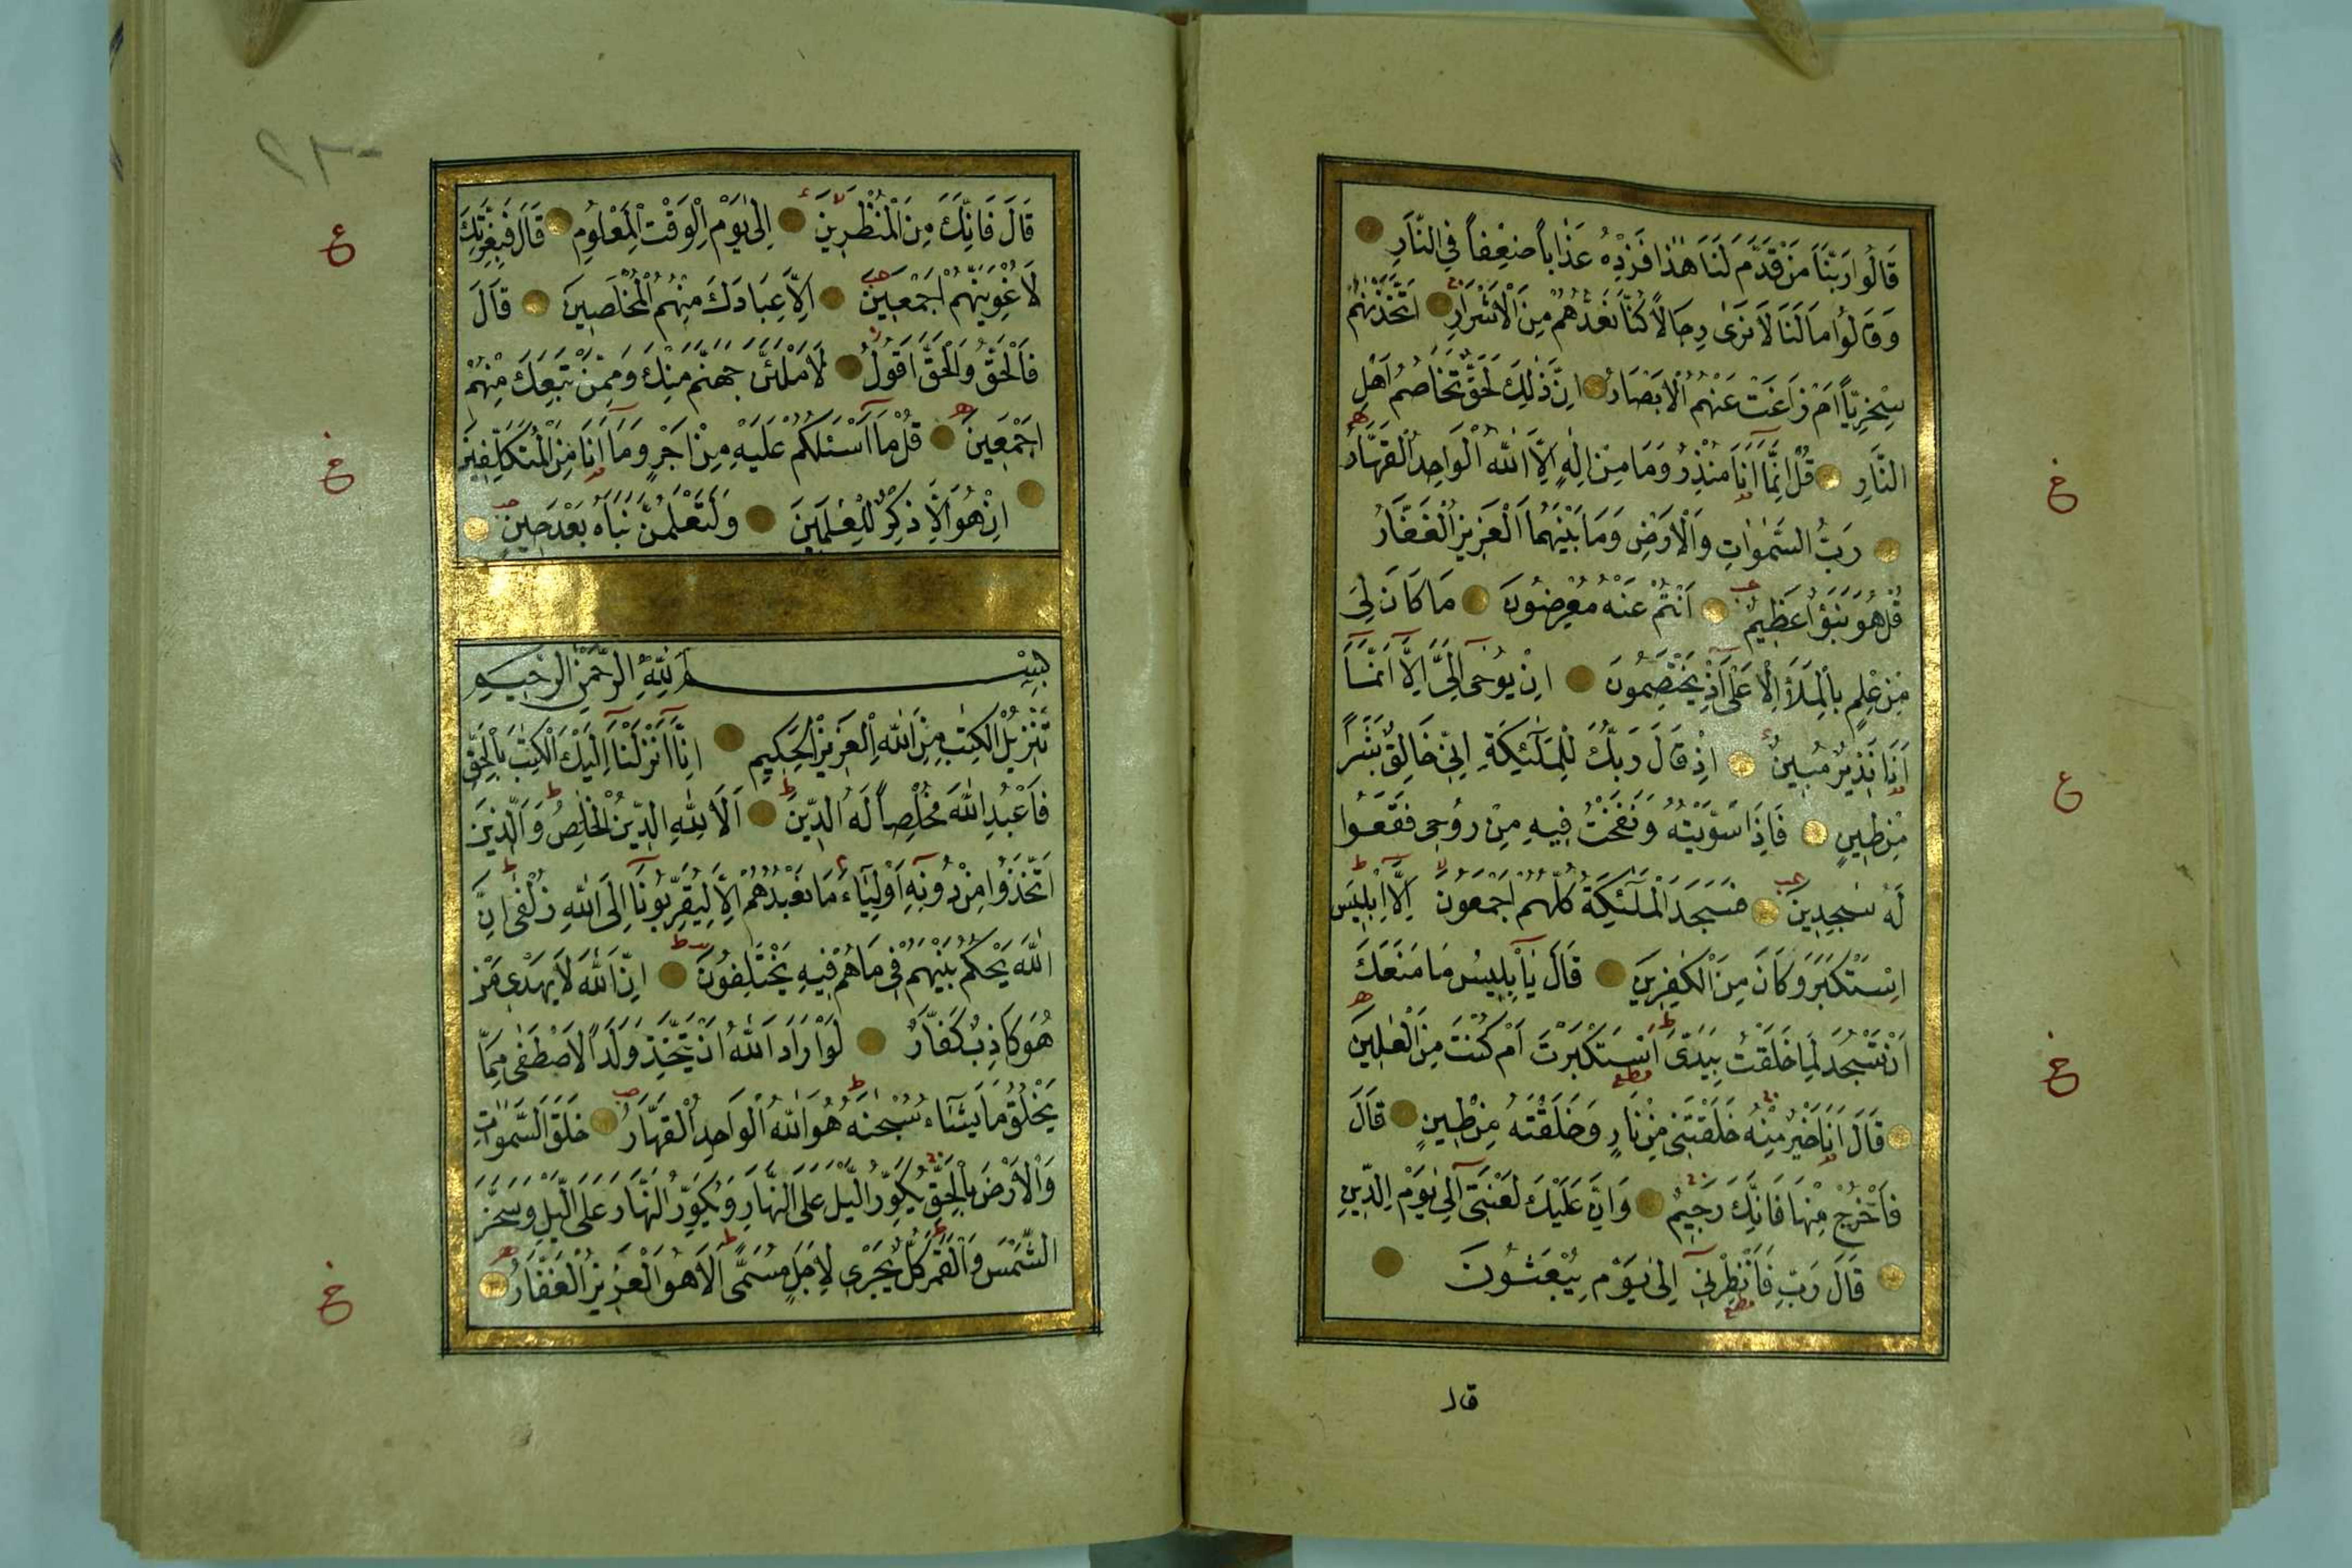 قَالُوا رَبَّنَا مَنْ قَدَّمَ لَنَا هٰذَا فَزِدْهُ عَذَاباً ضِعْفاً فِي النَّارِ
وَقَالُوا مَا لَنَا لَا نَرٰى رِجَالاً كُنَّا نَعُدُّهُمْ مِنَ الْاَشْرَارِ اَتَّخَذْنٰهُمْ
سِخْرِيّاً اَمْ زَاغَتْ عَنْهُمُ الْاَبْصَارُ اِنَّ ذٰلِكَ لَحَقٌّ تَخَاصُمُ اَهْلِ
النَّارِ قُلْ اِنَّمَا اَنَا مُنْذِرٌ وَمَا مِنْ اِلٰهٍ اِلَّا اللّٰهُ الْوَاحِدُ الْقَهَّارُ
رَبُّ السَّمٰوَاتِ وَالْاَرْضِ وَمَا بَيْنَهُمَا الْعَزِيزُ الْغَفَّارُ
قُلْ هُوَ نَبَؤٌا عَظِيمٌ اَنْتُمْ عَنْهُ مُعْرِضُونَ مَا كَانَ لِيَ
مِنْ عِلْمٍ بِالْمَلَاِ الْاَعْلٰى اِذْ يَخْتَصِمُونَ اِنْ يُوحٰى اِلَيَّ اِلَّا اَنَّمَا
اَنَا نَذِيرٌ مُبِينٌ اِذْ قَالَ رَبُّكَ لِلْمَلٰئِكَةِ اِنِّي خَالِقٌ بَشَراً
مِنْ طِينٍ فَاِذَا سَوَّيْتُهُ وَنَفَخْتُ فِيهِ مِنْ رُوحِي فَقَعُوا
لَهُ سٰجِدِينَ فَسَجَدَ الْمَلٰئِكَةُ كُلُّهُمْ اَجْمَعُونَ اِلَّا اِبْلِيسَ
اِسْتَكْبَرَ وَكَانَ مِنَ الْكٰفِرِينَ قَالَ يَا اِبْلِيسُ مَا مَنَعَكَ
اَنْ تَسْجُدَ لِمَا خَلَقْتُ بِيَدَيَّ اَسْتَكْبَرْتَ اَمْ كُنْتَ مِنَ الْعٰلِينَ
قَالَ اَنَا خَيْرٌ مِنْهُ خَلَقْتَنِي مِنْ نَارٍ وَخَلَقْتَهُ مِنْ طِينٍ قَالَ
فَاخْرُجْ مِنْهَا فَاِنَّكَ رَجِيمٌ وَاِنَّ عَلَيْكَ لَعْنَتِي اِلٰى يَوْمِ الدِّينِ
قَالَ رَبِّ فَاَنْظِرْنِي اِلٰى يَوْمِ يُبْعَثُونَ
قال
قَالَ فَاِنَّكَ مِنَ الْمُنْظَرِينَ اِلٰى يَوْمِ الْوَقْتِ الْمَعْلُومِ قَالَ فَبِعِزَّتِكَ
لَاُغْوِيَنَّهُمْ اَجْمَعِينَ اِلَّا عِبَادَكَ مِنْهُمُ الْمُخْلَصِينَ قَالَ
فَالْحَقُّ وَالْحَقَّ اَقُولُ لَاَمْلَئَنَّ جَهَنَّمَ مِنْكَ وَمِمَّنْ تَبِعَكَ مِنْهُمْ
اَجْمَعِينَ قُلْ مَا اَسْئَلُكُمْ عَلَيْهِ مِنْ اَجْرٍ وَمَا اَنَا مِنَ الْمُتَكَلِّفِينَ
اِنْ هُوَ اِلَّا ذِكْرٌ لِلْعٰلَمِينَ وَلَتَعْلَمُنَّ نَبَاَهُ بَعْدَ حِينٍ
بِسْمِ اللّٰهِ الرَّحْمٰنِ الرَّحِيمِ
تَنْزِيلُ الْكِتٰبِ مِنَ اللّٰهِ الْعَزِيزِ الْحَكِيمِ اِنَّا اَنْزَلْنَا اِلَيْكَ الْكِتٰبَ بِالْحَقِّ
فَاعْبُدِ اللّٰهَ مُخْلِصاً لَهُ الدِّينَ اَلَا لِلّٰهِ الدِّينُ الْخَالِصُ وَالَّذِينَ
اتَّخَذُوا مِنْ دُونِهِ اَوْلِيَاءَ مَا نَعْبُدُهُمْ اِلَّا لِيُقَرِّبُونَا اِلَى اللّٰهِ زُلْفٰى اِنَّ
اللّٰهَ يَحْكُمُ بَيْنَهُمْ فِي مَا هُمْ فِيهِ يَخْتَلِفُونَ اِنَّ اللّٰهَ لَا يَهْدِي مَنْ
هُوَ كَاذِبٌ كَفَّارٌ لَوْ اَرَادَ اللّٰهُ اَنْ يَتَّخِذَ وَلَداً لَاصْطَفٰى مِمَّا
يَخْلُقُ مَا يَشَاءُ سُبْحٰنَهُ هُوَ اللّٰهُ الْوَاحِدُ الْقَهَّارُ خَلَقَ السَّمٰوَاتِ
وَالْاَرْضَ بِالْحَقِّ يُكَوِّرُ الَّيْلَ عَلَى النَّهَارِ وَيُكَوِّرُ النَّهَارَ عَلَى الَّيْلِ وَسَخَّرَ
الشَّمْسَ وَالْقَمَرَ كُلٌّ يَجْرِي لِاَجَلٍ مُسَمًّى اَلَا هُوَ الْعَزِيزُ الْغَفَّارُ